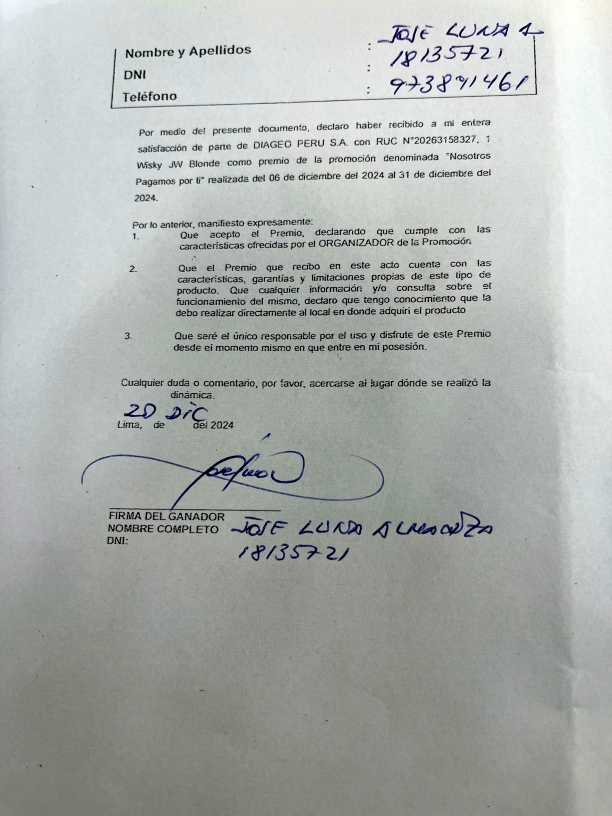 Nombre y Apellidos : JOSE LUNA A
DNI : 18135721
Teléfono : 973891461
Por medio del presente documento, declaro haber recibido a mi entera
satisfacción de parte de DIAGEO PERU S.A. con RUC N°20263158327, 1
Wisky JW Blonde como premio de la promoción denominada "Nosotros
Pagamos por ti" realizada del 06 de diciembre del 2024 al 31 de diciembre del
2024.
Por lo anterior, manifiesto expresamente:
1. Que acepto el Premio, declarando que cumple con las
características ofrecidas por el ORGANIZADOR de la Promoción
2. Que el Premio que recibo en este acto cuenta con las
características, garantías y limitaciones propias de este tipo de
producto. Que cualquier información y/o consulta sobre el
funcionamiento del mismo, declaro que tengo conocimiento que la
debo realizar directamente al local en donde adquirí el producto
3. Que seré el único responsable por el uso y disfrute de este Premio
desde el momento mismo en que entre en mi posesión.
Cualquier duda o comentario, por favor, acercarse al lugar dónde se realizó la
dinámica.
20 DIC
Lima, de del 2024
FIRMA DEL GANADOR
NOMBRE COMPLETO JOSE LUNA ALMANZA
DNI: 18135721